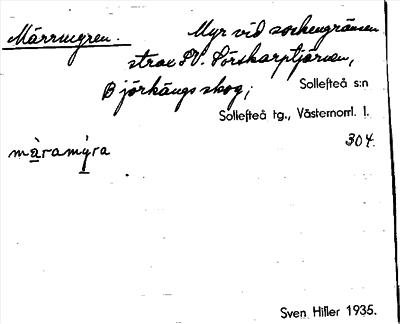 Märrmyren. Myr vid sockengränsen
strax SV. Sörskarptjärnen,
Björkängs skog; Sollefteå s:n
Sollefteå tg., Västernorrl. l.
màramýra 304.
Sven Hiller 1935.